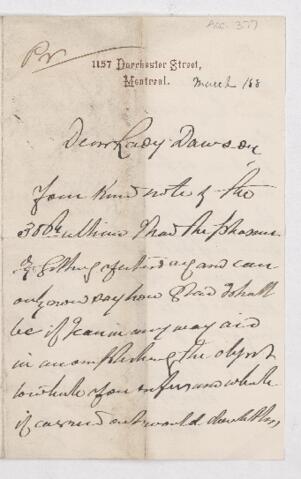 Acc. 377
Pr
1157 Dorchester Street,
Montreal. March /88
Dear Lady Dawson
Your kind note of the
30th ultimo I had the pleasure
of getting yesterday and can
only now say how glad I shall
be if I can in any way aid
in accomplishing the object
to which you refer and which
if carried out would doubtless